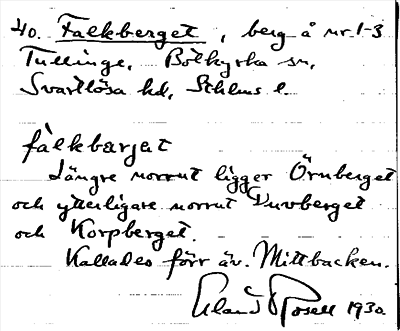 40. Falkberget, berg å nr 1-3
Tullinge, Botkyrka sn,
Svartlösa hd, Sthlms l.
fàlkbarjat
Längre norrut ligger Örnberget
och ytterligare norrut Duvberget
och Korpberget.
Kallades förr äv. Mittbacken.
Erland Rosell 1930